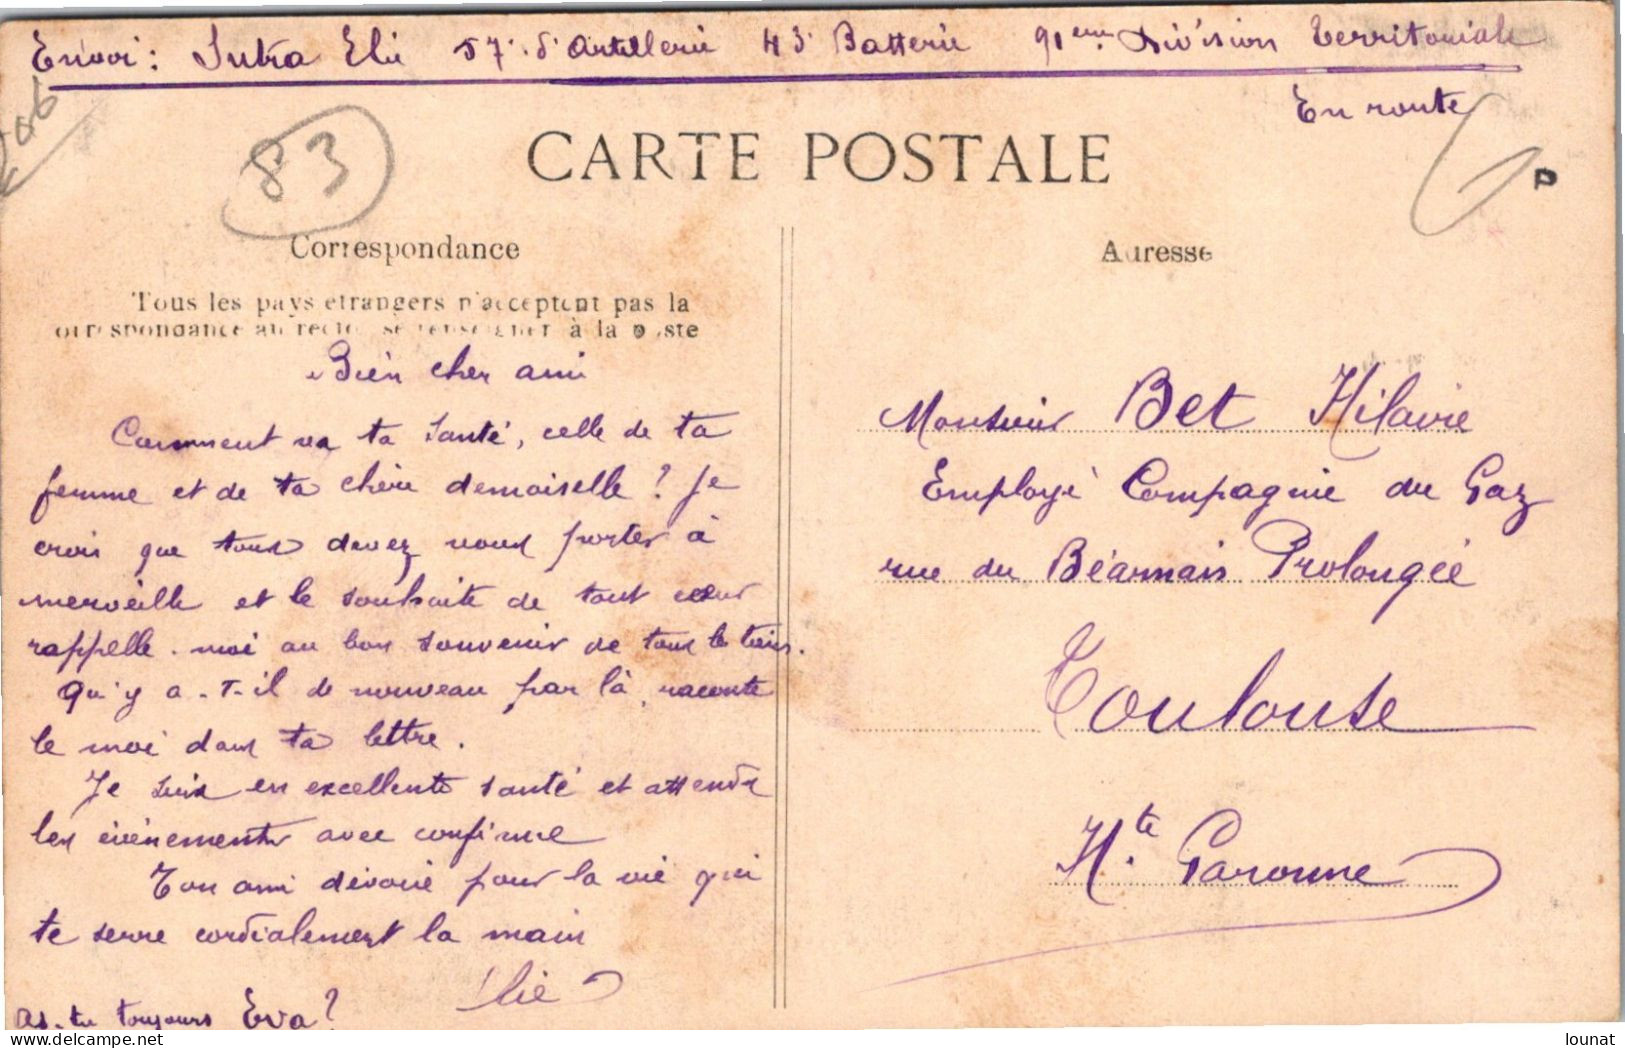 Envoi : Sutra Elie 57e d'Artillerie 43e Batterie 91ème Division Territoriale
En route
83
CARTE POSTALE
Correspondance
Adresse
Tous les pays etrangers n'acceptent pas la
correspondance au recto, se renseigner à la poste
Bien cher ami
Comment va ta santé, celle de ta
femme et de ta chère demoiselle ? Je
crois que tous devez vous porter à
merveille et le souhaite de tout cœur
rappelle-moi au bon souvenir de tous les tiens.
Qu'y a-t-il de nouveau par là, raconte
le moi dans ta lettre.
Je suis en excellente santé et attends
les évènements avec confiance
Ton ami dévoué pour la vie qui
te serre cordialement la main
Elie
as-tu toujours Eva ?
Monsieur Bet Hilaire
Employé Compagnie du Gaz
rue du Béarnais Prolongée
Toulouse
Hte Garonne
lounat
delcampe.net